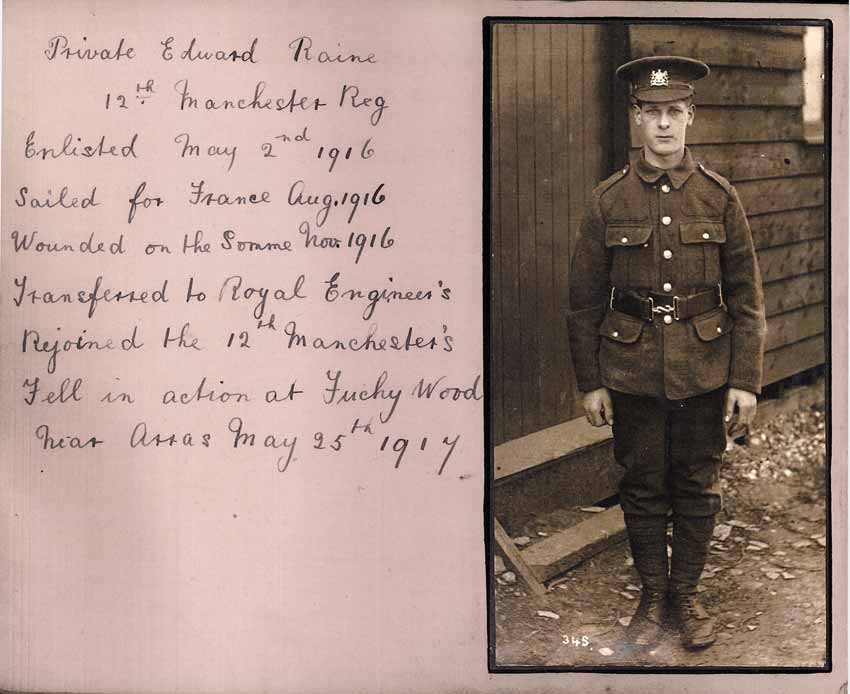 Private Edward Raine
12th Manchester Reg
Enlisted May 2nd 1916
Sailed for France Aug. 1916
Wounded on the Somme Nov 1916
Transferred to Royal Engineer's
Rejoined the 12th Manchester's
Fell in action at Fuchy Wood
near Arras May 25th 1917
345.